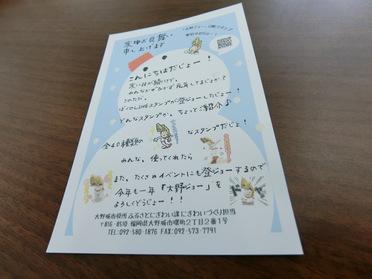 寒中お見舞い
申し上げます
こんにちはだじょー！
寒い日が続いて、
みんなかぜひかず元気してるじょか？
ぼくのLINEスタンプが登ジョーしたじょー！
どんなスタンプか、ちょっとご紹介♪
全40種類の
なスタンプだじょ！
みんな、使ってくれたら
また、たくさんイベントにも登ジョーするので
今年も一年「大野ジョー」を
よろしくじょー！！
大野城市役所ふるさとにぎわい課にぎわいづくり担当
〒816-8510 福岡県大野城市曙町2丁目2番1号
TEL:092-580-1876 FAX:092-573-7791